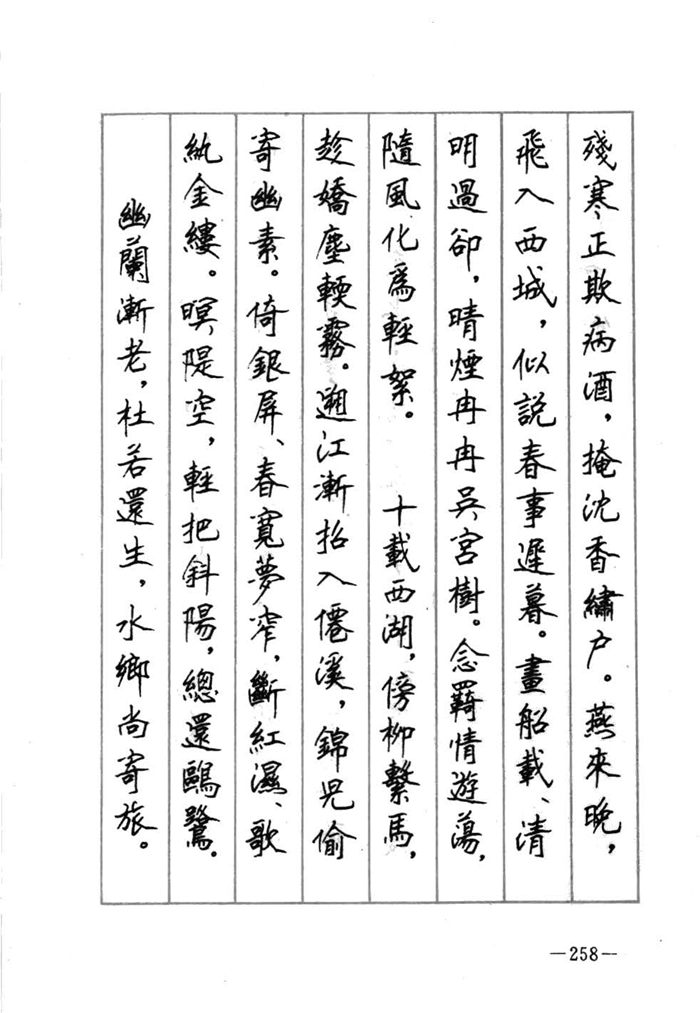 殘寒正欺病酒，掩沈香繡户。燕來晚，
飛入西城，似說春事遲暮。畫船載、清
明過卻，晴煙冉冉吳宮樹。念羇情遊蕩，
隨風化爲輕絮。　十載西湖，傍柳繫馬，
趁嬌塵輭霧。遡江漸招入僊溪，錦兒偷
寄幽素。倚銀屏、春寬夢窄，斷紅濕、歌
紈金縷。暝隄空，輕把斜陽，總還鷗鷺。
幽蘭漸老，杜若還生，水鄉尚寄旅。
—258—